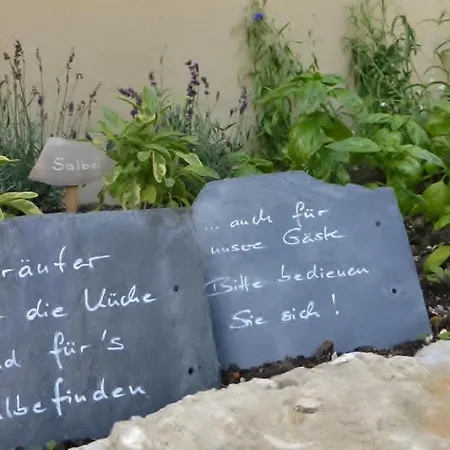 Salbei
räuter
r die Küche
nd für's
lbefinden
... auch für
unsere Gäste
Bitte bedienen
Sie sich!